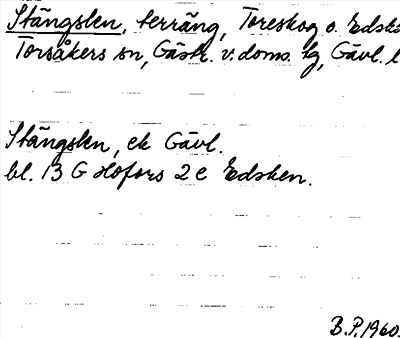 Stängslen, terräng, Toreskog o. Edske
Torsåkers sn, Gästr. v. doms. lg, Gävl. l
Stängslen, ek Gävl.
bl. 13 G Hofors 2 e Edsken.
B.P. 1960.